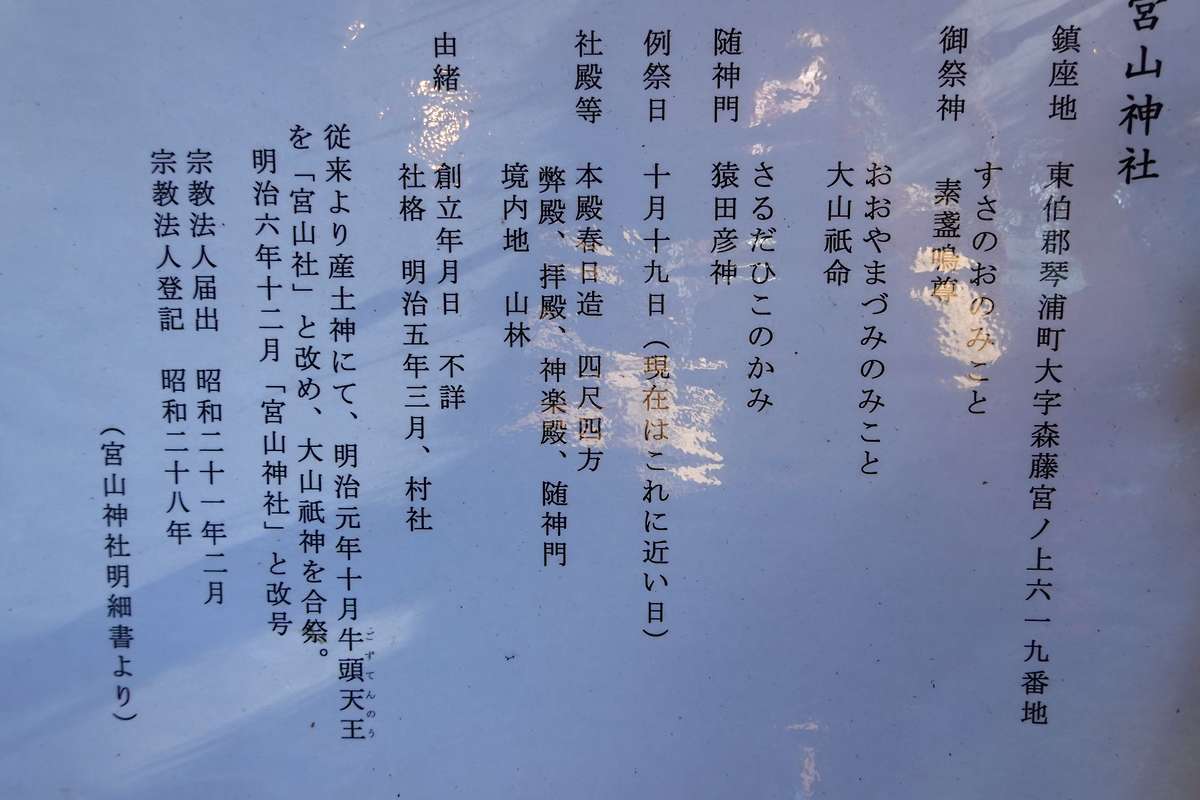 宮山神社
鎮座地　東伯郡琴浦町大字森藤宮ノ上六一九番地
すさのおのみこと
御祭神　素盞鳴尊
おおやまづみのみこと
大山祇命
さるだひこのかみ
随神門　猿田彦神
例祭日　十月十九日（現在はこれに近い日）
社殿等　本殿春日造　四尺四方
弊殿、拝殿、神楽殿、随神門
境内地　山林
由緒　創立年月日　不詳
社格　明治五年三月、村社
従来より産土神にて、明治元年十月牛頭天王
ごずてんのう
を「宮山社」と改め、大山祇神を合祭。
明治六年十二月「宮山神社」と改号
宗教法人届出　昭和二十一年二月
宗教法人登記　昭和二十八年
（宮山神社明細書より）